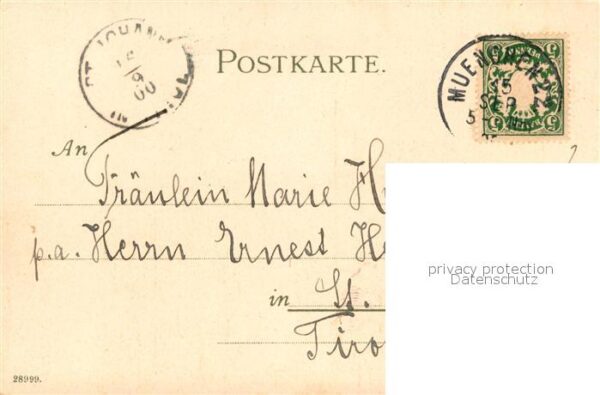 POSTKARTE.
ST. JOHANN
16/9 00
MUENCHEN 22
15
SEP
5
An
Fräulein Marie
p.a. Herrn Ernest
in St.
Tirol
privacy protection
Datenschutz
28999.